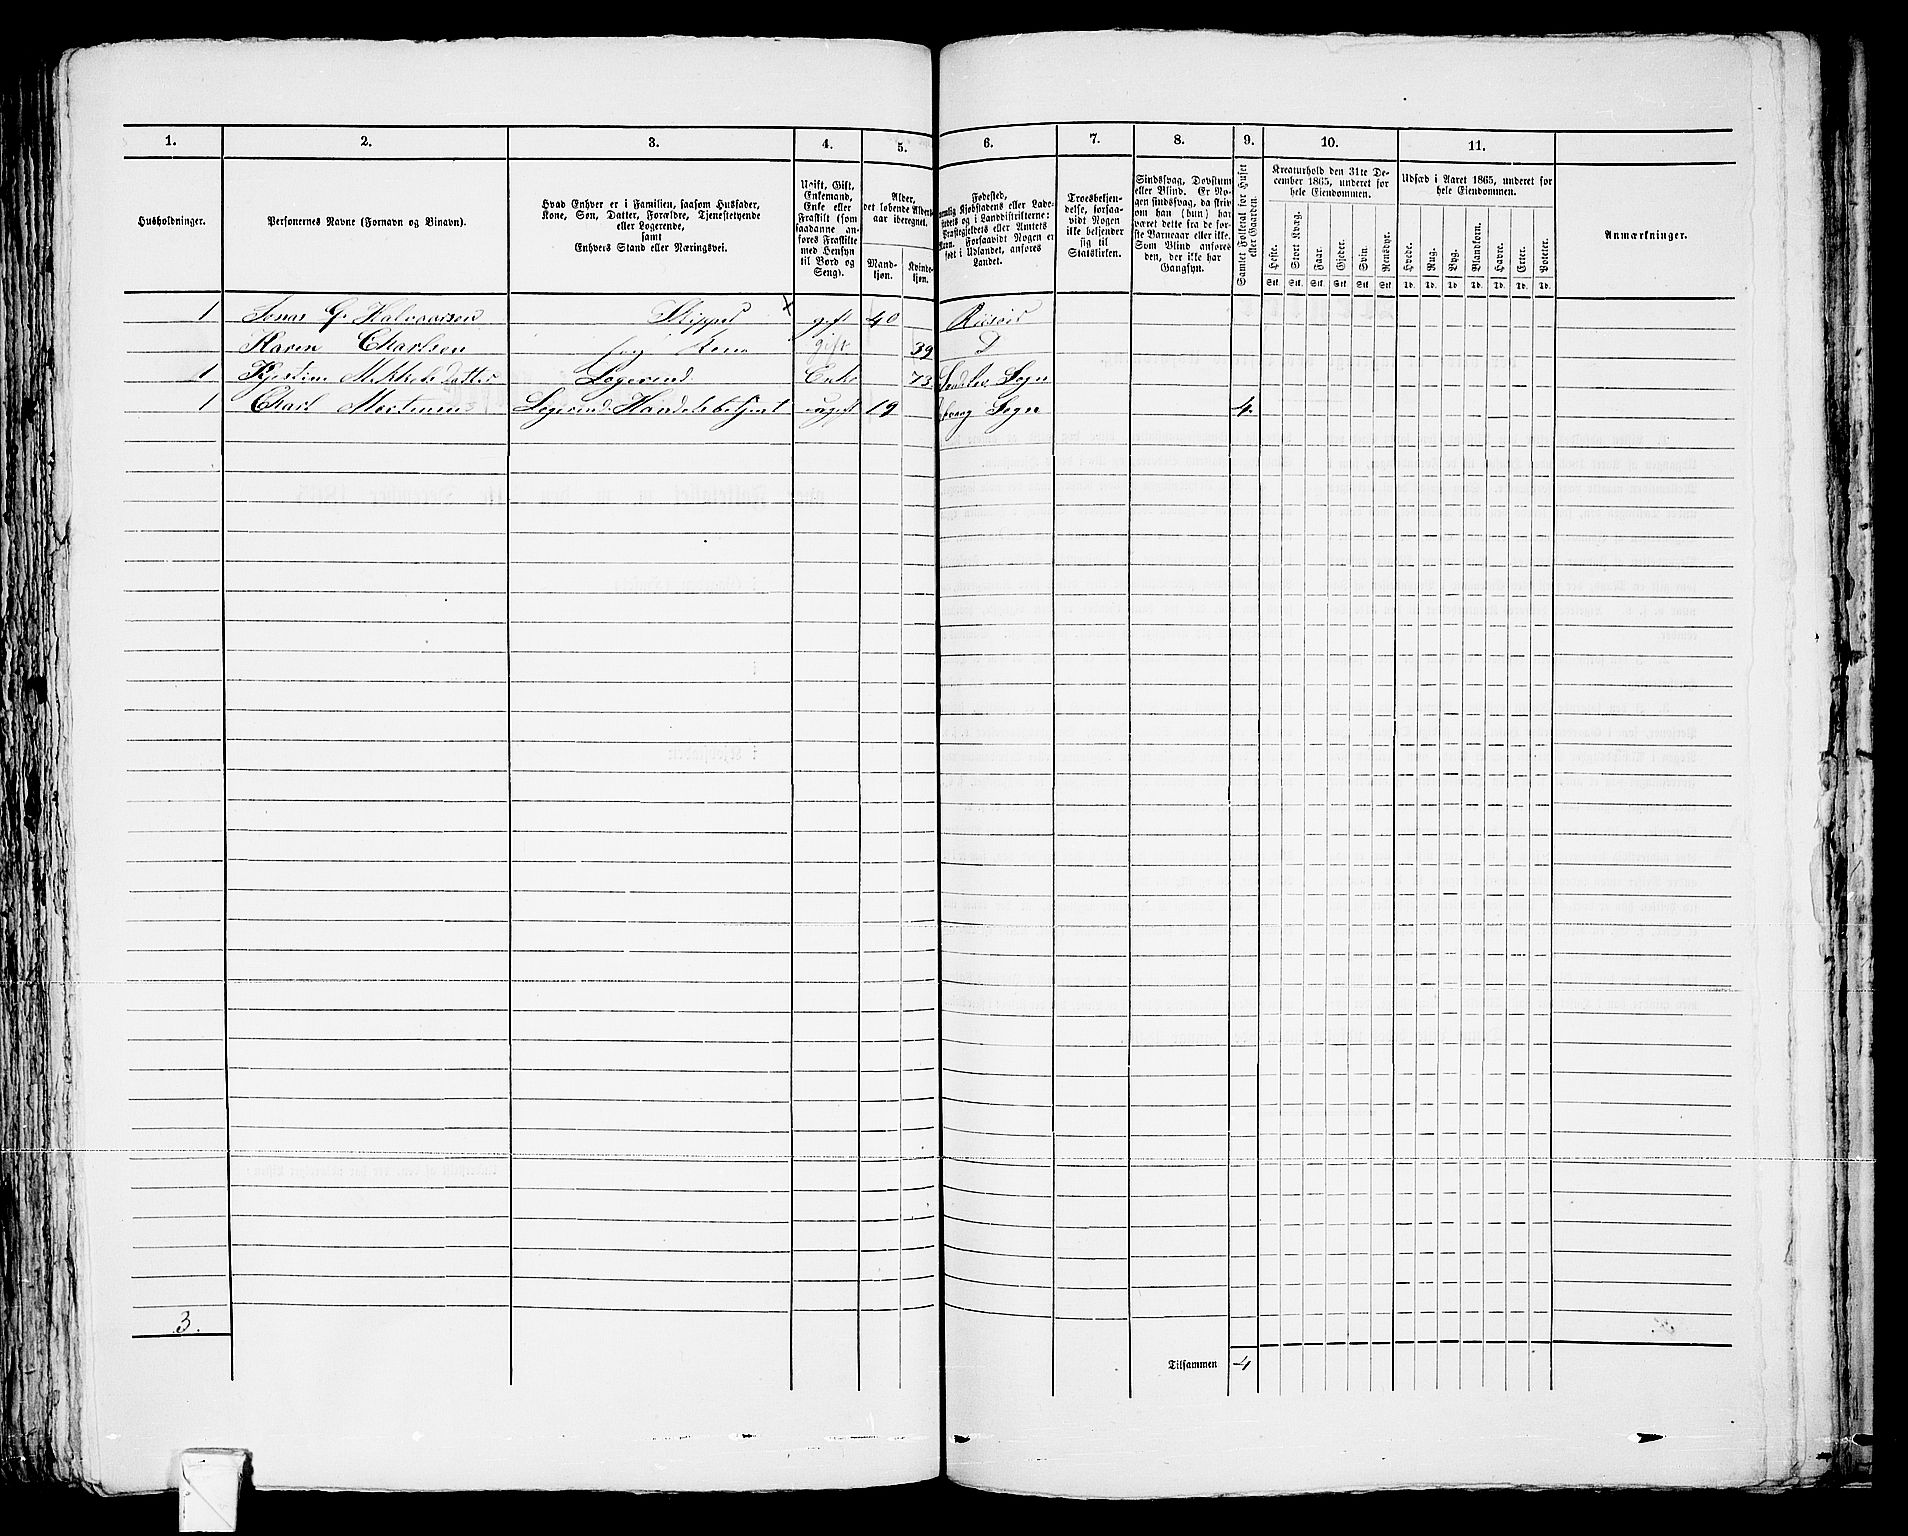 1. 2. 3. 4. 5. 6. 7. 8. 9. 10. 11.
Husholdninger.
Personernes Navne (Fornavn og Binavn).
Hvad Enhver er i Familien, saasom Husfader,
Kone, Søn, Datter, Forældre, Tjenestetyende
eller Logerende,
samt
Enhvers Stand eller Næringsvei.
Ugift, Gift,
Enkemand,
Enke eller
Fraskilt (som
saadanne an-
føres Fraskilte
med Hensyn
til Bord og
Seng).
Alder,
det løbende Alders-
aar iberegnet.
Mand-
kjøn.
Kvinde-
kjøn.
Fødested,
nemlig Kjøbstadens eller Lade-
stedets og i Landdistrikterne:
Præstegjeldets eller Amtets
Navn. Forsaavidt Nogen er
født i Udlandet, anføres
Landet.
Troesbekjen-
delse, forsaa-
vidt Nogen
ikke bekjender
sig til
Statskirken.
Sindssvag, Døvstum
eller Blind. Er No-
gen sindssvag, da skriv
om han (hun) har
været dette fra de før-
ste Barneaar eller ikke.
Som Blind anføres
den, der ikke har
Gangsyn.
Samlet Folketal for Huset
eller Gaarden.
Kreaturhold den 31te De-
cember 1865, underet for
hele Eiendommen.
Heste. Stort Kvæg. Faar. Gjeder. Svin. Rensdyr.
Stk. Stk. Stk. Stk. Stk. Stk.
Udsæd i Aaret 1865, underet for
hele Eiendommen.
Hvede. Rug. Byg. Blandkorn. Havre. Erter. Poteter.
Td. Td. Td. Td. Td. Td. Td.
Anmærkninger.
1 Jonas G. Halvorsen Skipper x gift 40 Riisøer
Karen Charlsen hans Kone gift 39 D
1 Kjestine Mikkelsdatter Logerend Enke 73 Sogn
1 Charl Mortensen Logerend Handelsbetjent ugift 19 Sogn 4.
3.
Tilsammen 4